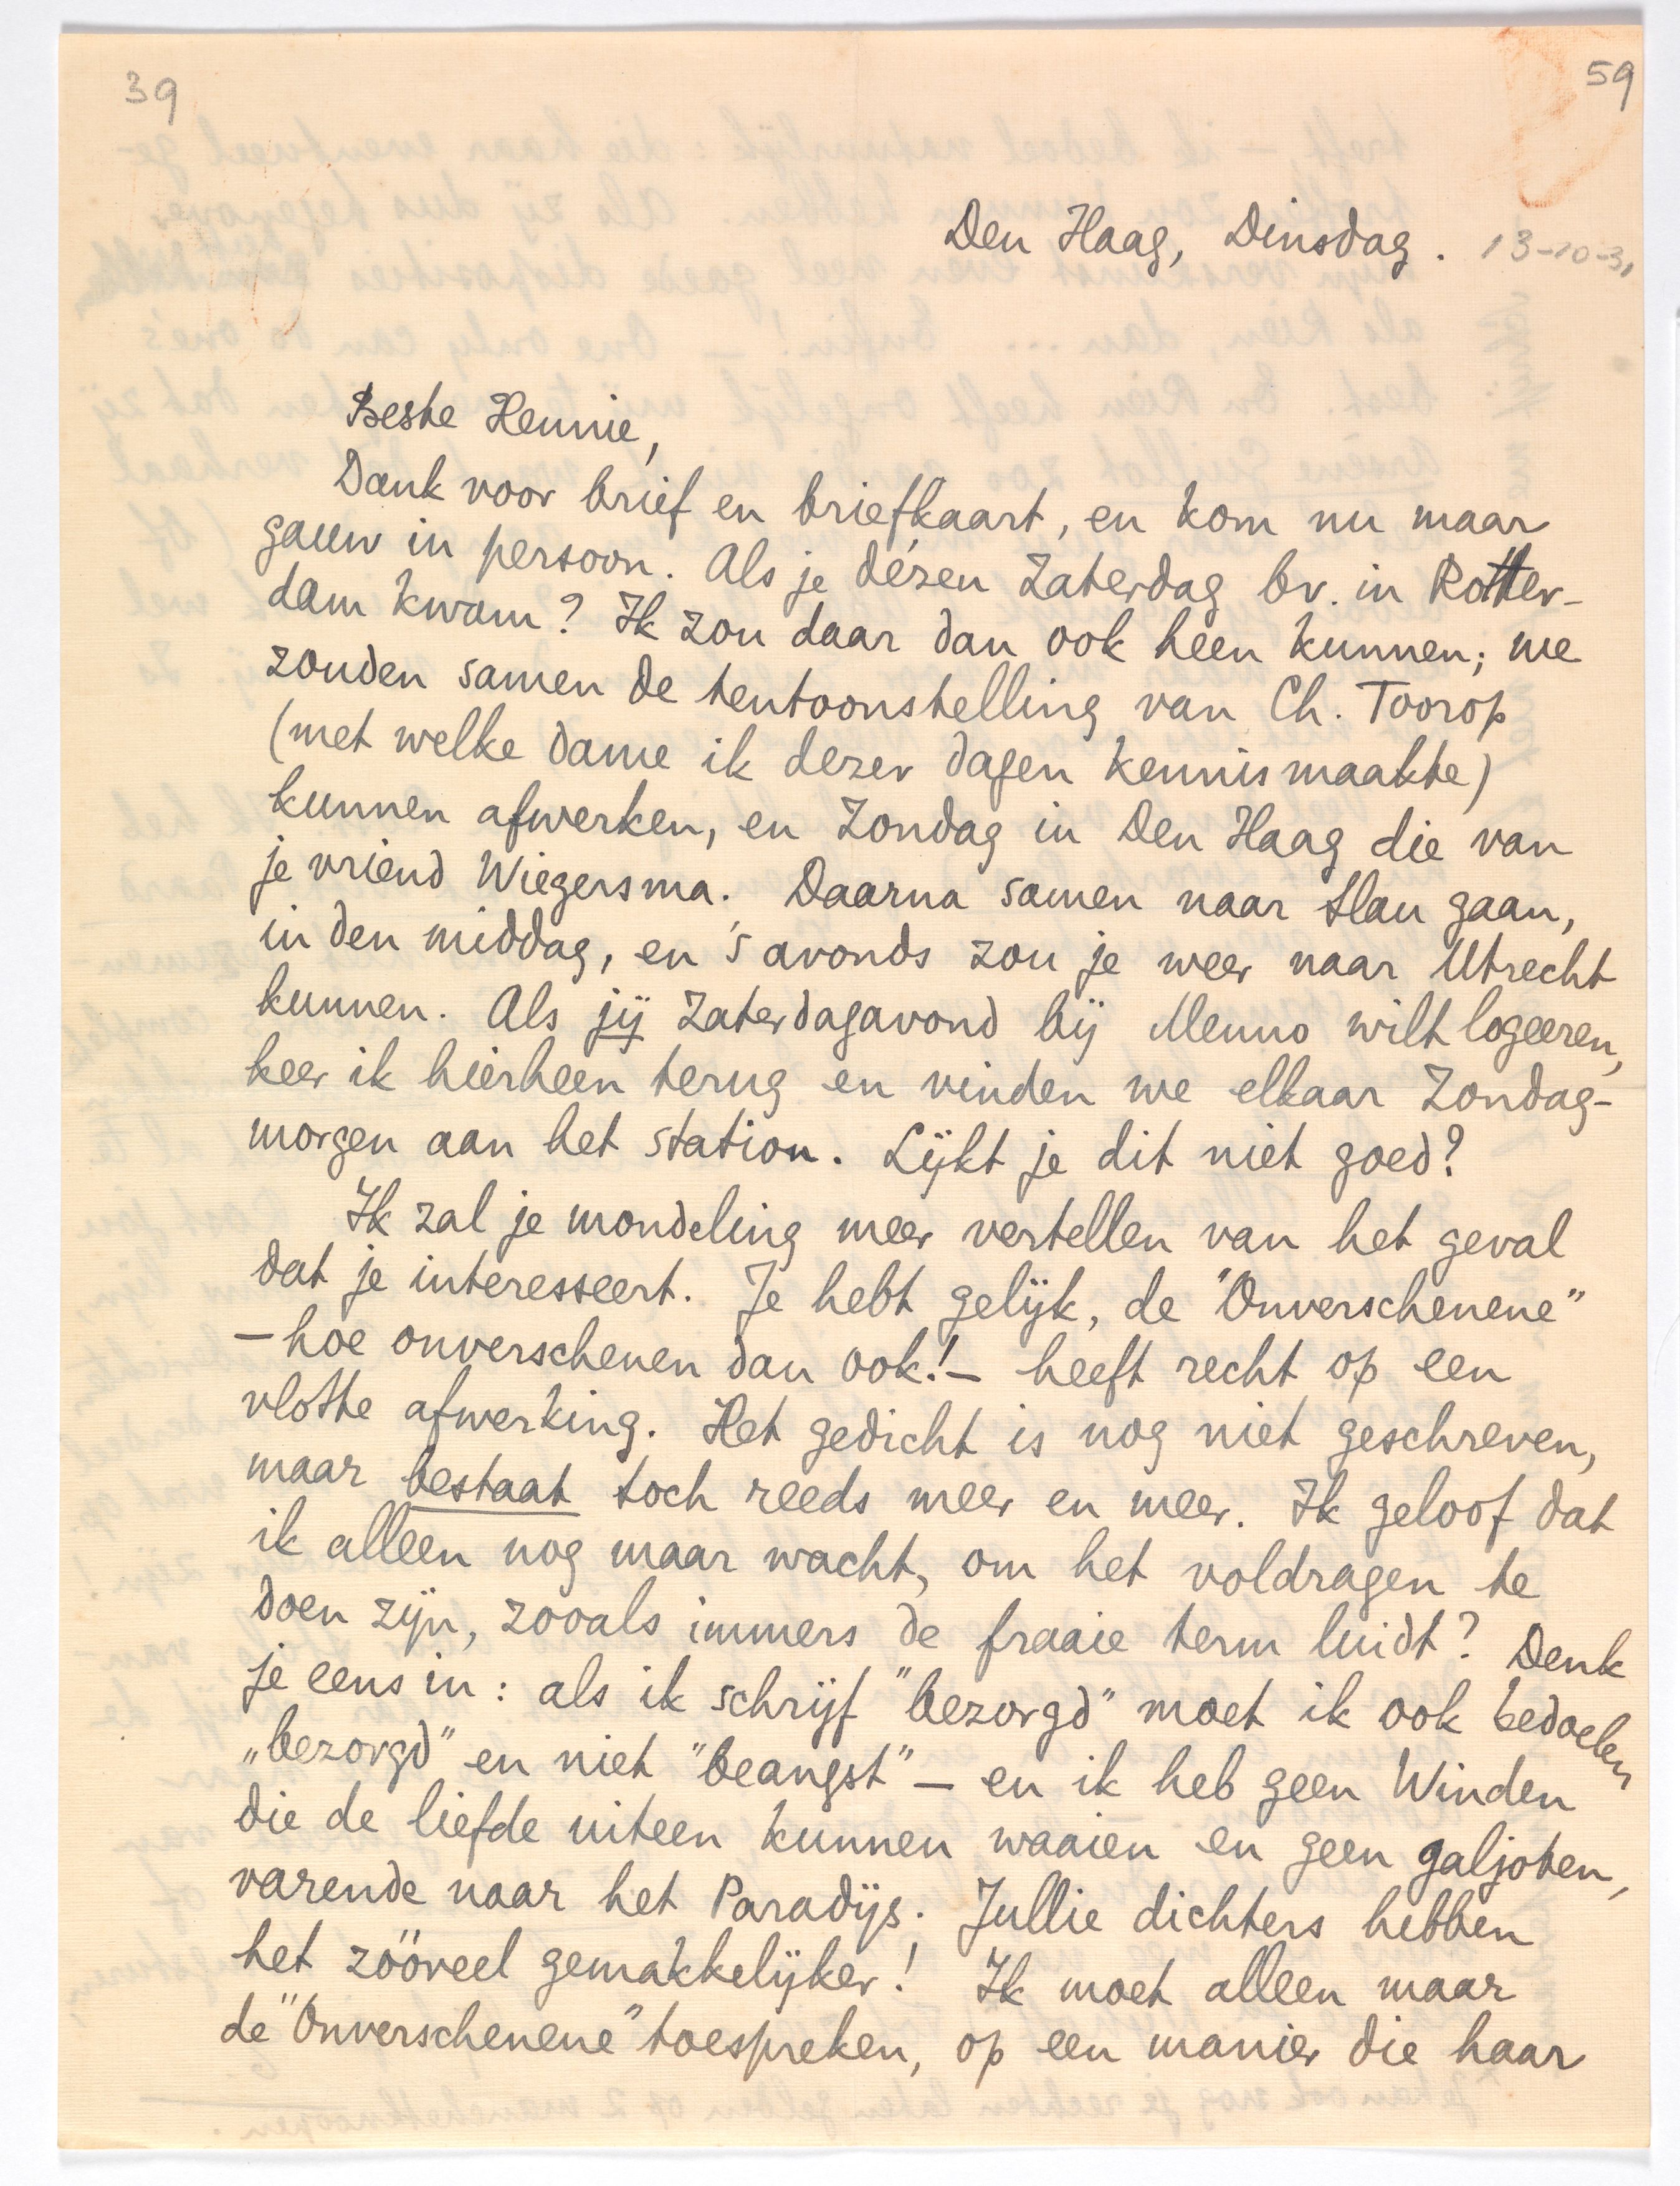 39
59
Den Haag, Dinsdag. 13-10-31
Beste Hennie,
Dank voor brief en briefkaart, en kom nu maar
gauw in persoon. Als je dézen Zaterdag bv. in Rotter-
dam kwam? Ik zou daar dan ook heen kunnen; we
zouden samen de tentoonstelling van Ch. Toorop
(met welke dame ik dezer dagen kennismaakte)
kunnen afwerken, en Zondag in Den Haag die van
je vriend Wiegersma. Daarna samen naar Slau gaan,
in den middag, en 's avonds zou je weer naar Utrecht
kunnen. Als jij Zaterdagavond bij Menno wilt logeeren,
keer ik hierheen terug en vinden we elkaar Zondag-
morgen aan het station. Lijkt je dit niet goed?
Ik zal je mondeling meer vertellen van het geval
dat je interesseert. Je hebt gelijk, de "Onverschenene"
– hoe onverschenen dan ook! – heeft recht op een
vlotte afwerking. Het gedicht is nog niet geschreven,
maar bestaat toch reeds meer en meer. Ik geloof dat
ik alleen nog maar wacht, om het voldragen te
doen zijn, zooals immers de fraaie term luidt? Denk
je eens in: als ik schrijf "bezorgd" moet ik ook bedoelen
„bezorgd" en niet "beangst" – en ik heb geen Winden
die de liefde uiteen kunnen waaien en geen galjoten,
varende naar het Paradijs. Jullie dichters hebben
het zóóveel gemakkelijker! Ik moet alleen maar
de "Onverschenene" toespreken, op een manier die haar